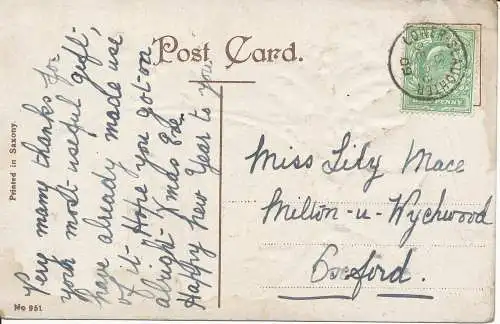 Post Card.
LOWER-SLAUGHTER
Very many thanks for
your most useful gift-
have already made use
of it- Hope you got-on
alright- Xmas Eve
Happy New Year to you
Miss Lily Mace
Milton-u-Wychwood
Oxford.
Printed in Saxony.
No 951